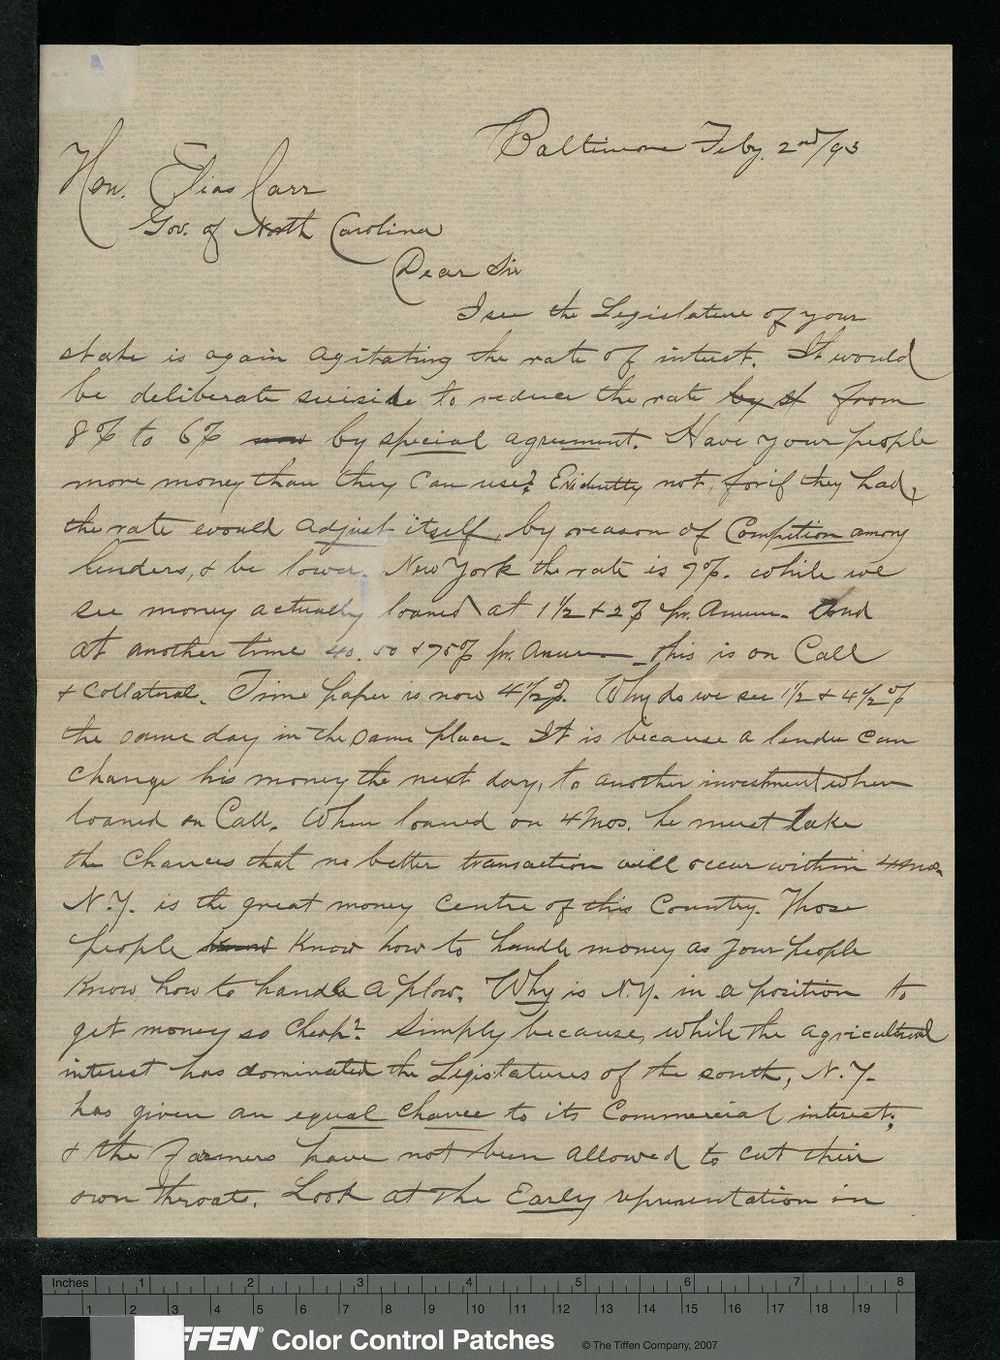 Baltimore Feby. 2nd/93
Hon. Elias Carr
Gov. of North Carolina
Dear Sir
I see the Legislature of your
state is again agitating the rate of interest. It would
be deliberate suicide to reduce the rate by sp from
8% to 6% by special agreement. Have your people
more money than they can use? Evidently not, for if they had,
the rate would adjust itself, by reason of Compition among
lenders, & be lower. New York the rate is 7%. while we
see money actually loaned at 1 1/2 & 2% pr. Annum. And
at another time 40. 50 & 75% pr. Annum - this is on Call
& Collateral. Time paper is now 4 1/2%. Why do we see 1 1/2 & 4 1/2%
the same day in the same place. It is because a lender can
change his money the next day, to another investment when
loaned on Call. When loaned on 4 mos. he must take
the Chances that no better transaction will occur within 4 mos.
N.Y. is the great money centre of this Country. Those
people know Know how to handle money as your people
Know how to handle a plow. Why is N.Y. in a position to
get money so cheap? Simply because, while the agricultural
interest has dominated the Legislatures of the south, N.Y.
has given an equal chance to its Commercial interest;
& the Farmers have not been allowed to cut their
own throats. Look at the Early representation in
Inches 1 2 3 4 5 6 7 8
1 2 3 4 5 6 7 8 9 10 11 12 13 14 15 16 17 18 19
FFEN® Color Control Patches © The Tiffen Company, 2007